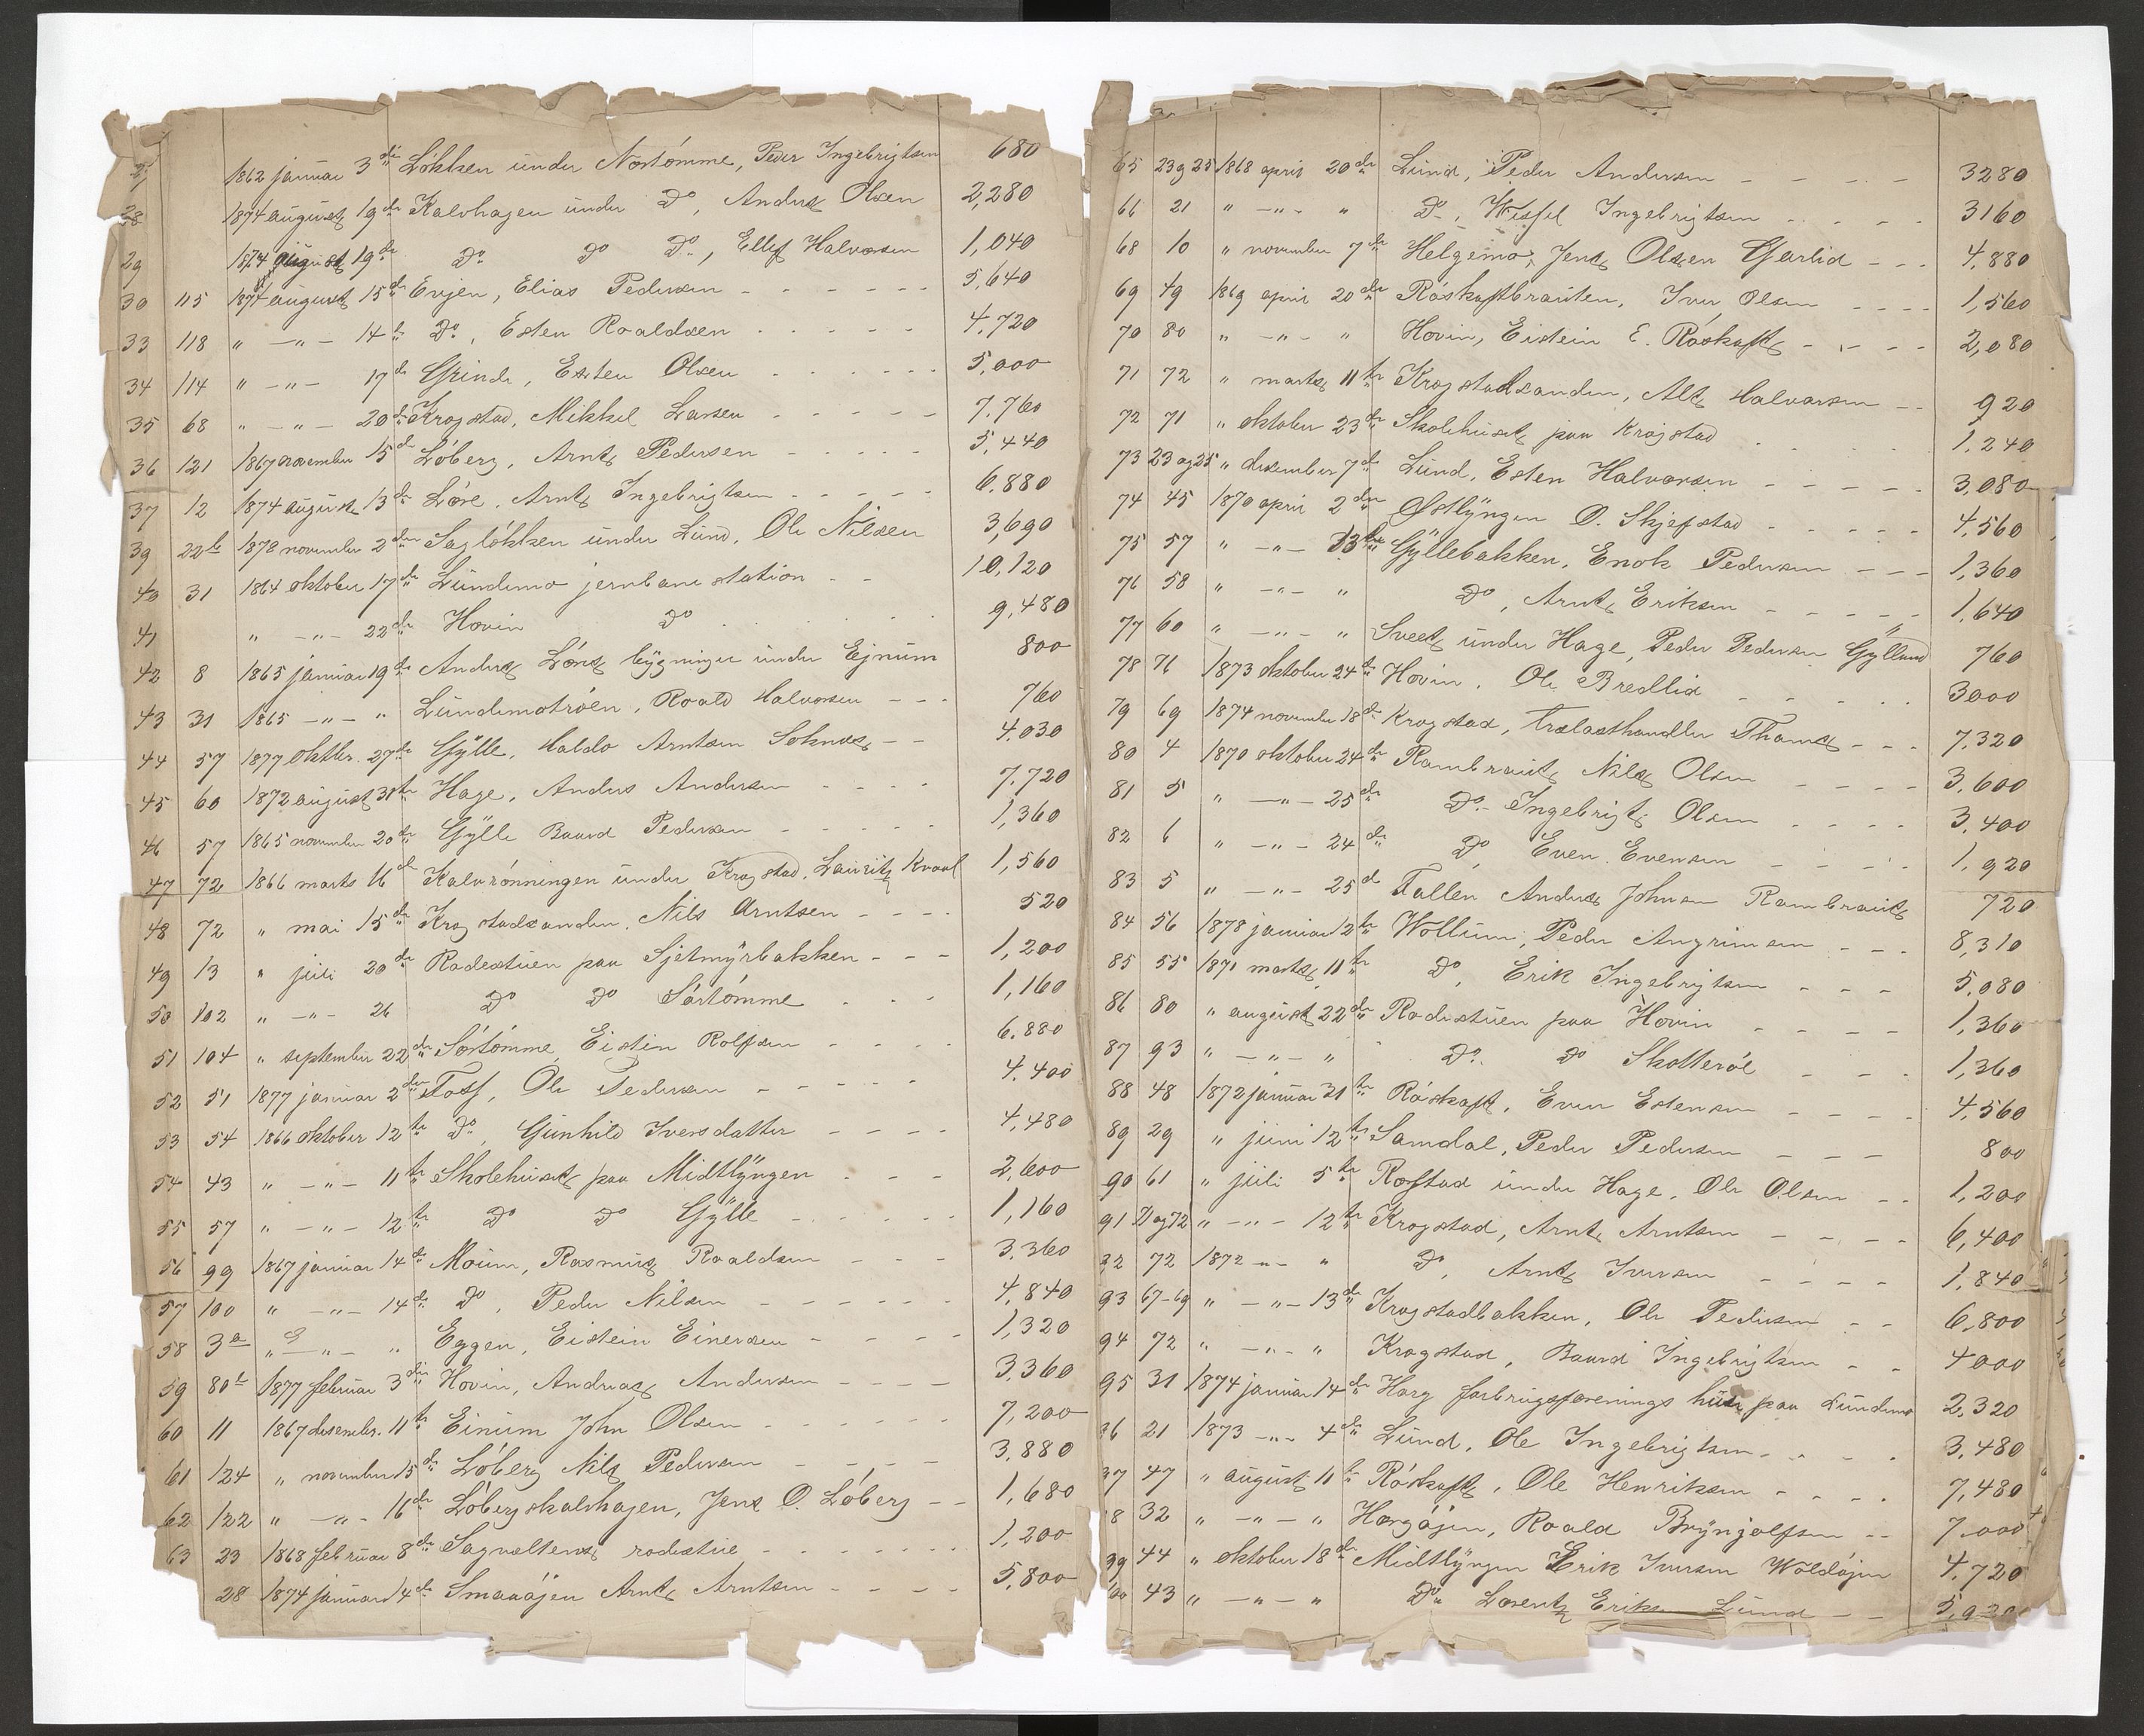 27 1862 januar 3die Løkken under Nortømme, Peder Ingebrigtsen 680
28 1874 august 19de Kalvhagen under Do, Anders Olsen 2,280
29 1874 august 19de Do Do Do, Ellef Halvorsen 1,040
30 115 1874 august 15de Evjen, Elias Pedersen - - - - - - 5,640
33 118 " -"- 14de Do, Esten Roaldsen - - - - - 4,720
34 114 " -"- 17de Grinde, Esten Olsen - - - - - - 5,000
35 68 " -"- 20de Krogstad, Mikkel Larsen - - - - - 7,760
36 121 1867 november 15de Løberg, Arnt Pedersen - - - - - 5,440
37 12 1874 august 13de Løre, Arnt Ingebrigtsen - - - - - 6,880
39 22b 1878 november 2den Sagløkken under Lund, Ole Nilsen 3,690
40 31 1864 oktober 17de Lundemo jernbanestation - - 10,120
41 " -"- 22de Hovin Do - - - - - - 9,480
42 8 1865 januar 19de Anders Løres bygninger under Ejnum 800
43 31 1865 -"- " Lundemotrøen, Roald Halvorsen - - - 760
44 57 1877 oktbr. 27de Gylle, Haldo Arntsen Soknes - - 4,030
45 60 1872 august 31te Hage, Anders Andersen - - - - 7,720
46 57 1865 november 20de Gylle Baard Pedersen - - - - - 1,360
47 72 1866 marts 16de Kalvrønningen under Krogstad, Lauritz Kvaal 1,560
48 72 " mai 15de Krogstadsanden, Nils Arntsen - - - - 520
49 13 " juli 20de Rodestuen paa Sjetmyrbakken - - - 1,200
50 102 " -"- 26 Do Do Sørtømme - - - 1,160
51 104 " september 22de Sørtømme, Eistein Rolfsen - - - - 6,880
52 51 1877 januar 2den Foss, Ole Pedersen - - - - - 4,400
53 54 1866 oktober 12te Do, Gunhild Iversdatter - - - - 4,480
54 43 " -"- 11te Skolehuset paa Midtlyngen - - - 2,600
55 57 " -"- 12te Do Do Gylle - - - - - - 1,160
56 99 1867 januar 14de Moum, Rasmus Roaldsen - - - 3,360
57 100 " -"- 14de Do, Peder Nilsen - - - - - - 4,840
58 3a " -"- " Eggen, Eistein Einersen - - - - 1,320
59 80b 1877 februar 3die Hovin, Andreas Andersen - - - - 3,360
60 11 1867 desember 11te Einum John Olsen - - - - - - 7,200
61 124 " november 15de Løberg Nils Pedersen - - - - - 3,880
62 122 " -"- 16de Løbergskalvhagen, Jens O. Løberg - - 1,680
63 23 1868 februar 8de Sagveltens rodestue - - - - - - - 1,200
28 1874 januar 14de Smaaøjen Arnt Arntsen - - - - 5,800
65 23 og 25 1868 april 20de Lund, Peder Andersen - - - - 3280
66 21 " -"- " Do, Wessel Ingebrigtsen - - - - 3160
68 10 " november 7de Helgemo, Jens Olsen Garlid - - - 4,880
69 49 1869 april 20de Røskaftbrauten, Iver Olsen - - - - 1,560
70 80 " -"- " Hovin, Eistein E. Røskaft - - - - 2,080
71 72 " marts 11te Krogstadsanden, Alt Halvorsen - - 920
72 71 " oktober 23de Skolehuset paa Krogstad - - - - 1,240
73 23 og 25 " desember 7de Lund, Esten Halvorsen - - - - - 3,080
74 45 1870 april 2den Østlyngen O. Skjefstad - - - - - 4,560
75 57 " -"- 13de Gyllebakken, Enok Pedersen - - - 1,360
76 58 " -"- " Do, Arnt Eriksen - - - - - 1,640
77 60 " -"- " Sveet under Hage, Peder Pedersen Gyllund 760
78 76 1873 oktober 24de Hovin, Ole Bredlid - - - - - - 3000
79 69 1874 november 18de Krogstad, trælasthandler Thams - - - 7,320
80 4 1870 oktober 24de Rambraut, Nils Olsen - - - - 3,600
81 5 " -"- 25de Do - Ingebrigt Olsen - - - - 3,400
82 6 " -"- 24de Do Even Evensen - - - - 1,920
83 5 " -"- 25de Fallen Anders Johnsen Rambraut 720
84 56 1878 januar 12te Wollum, Peder Angrimsen - - - 8,310
85 55 1871 marts 11te Do, Erik Ingebrigtsen - - - 5,080
86 80 " august 22de Rodestuen paa Hovin - - - - 1,360
87 93 " -"- " Do. Do Skotterøe - - - 1,360
88 48 1872 januar 31te Røskaft, Even Estensen - - - - 4,560
89 29 " juni 12te Samdal, Peder Pedersen - - - 800
90 61 " juli 5te Rosstad under Hage, Ole Olsen - - 1,200
91 71 og 72 " -"- 12te Krogstad, Arnt Arntsen - - - - 6,400
92 72 1872 -"- " Do, Arnt Iversen - - - - 1,840
93 67-69 " -"- 13de Krogstadbakken, Ole Pedersen - - 6,800
94 72 " -"- " Krogstad, Baard Ingebrigtsen - - 4000
95 31 1874 januar 14de Horg forbrugsforenings hus paa Lundemo 2,320
96 21 1873 -"- 4de Lund, Ole Ingebrigtsen - - - - 3,480
97 47 " august 11te Røskaft, Ole Henriksen - - - - 7,480
98 32 " -"- " Horgøjen, Roald Brynjolfsen - - 7,000
99 44 " oktober 18de Midtlyngen Erik Iversen Woldøjen 4,720
100 43 " -"- " Do Lorentz Eriksen Lund - - 5,920